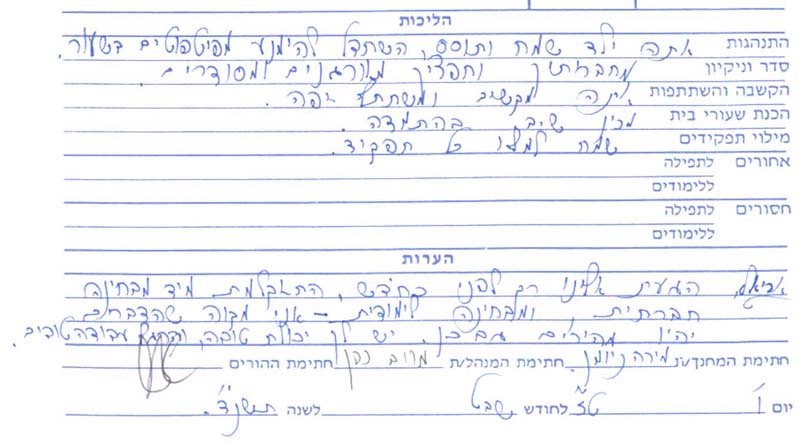 הליכות
התנהגות אתה ילד שמח ותוסס, השתדל להימנע מפיטפוטים בשעור.
סדר וניקיון מחברותיך וחפציך מאורגנים ומסודרים.
הקשבה והשתתפות אתה מקשיב ומשתתף יפה.
הכנת שעורי בית מכין ש"ב בהתמדה.
מילוי תפקידים שמח למלא כל תפקיד.
אחורים לתפילה
ללימודים
חסורים לתפילה
ללימודים
הערות
הגעת אלינו רק לפני כחודש, התאקלמת מיד מבחינה
חברתית, ומבחינה לימודית - אני מקוה שהדברים
יהיו מהירים גם כן. יש לך יכולת טובה, טובים.
חתימת המחנך/נת מירה ניומן. חתימת המנהל/ת חתימת ההורים
יום ו' ט"ז לחודש שבט לשנה תשנ"ד.